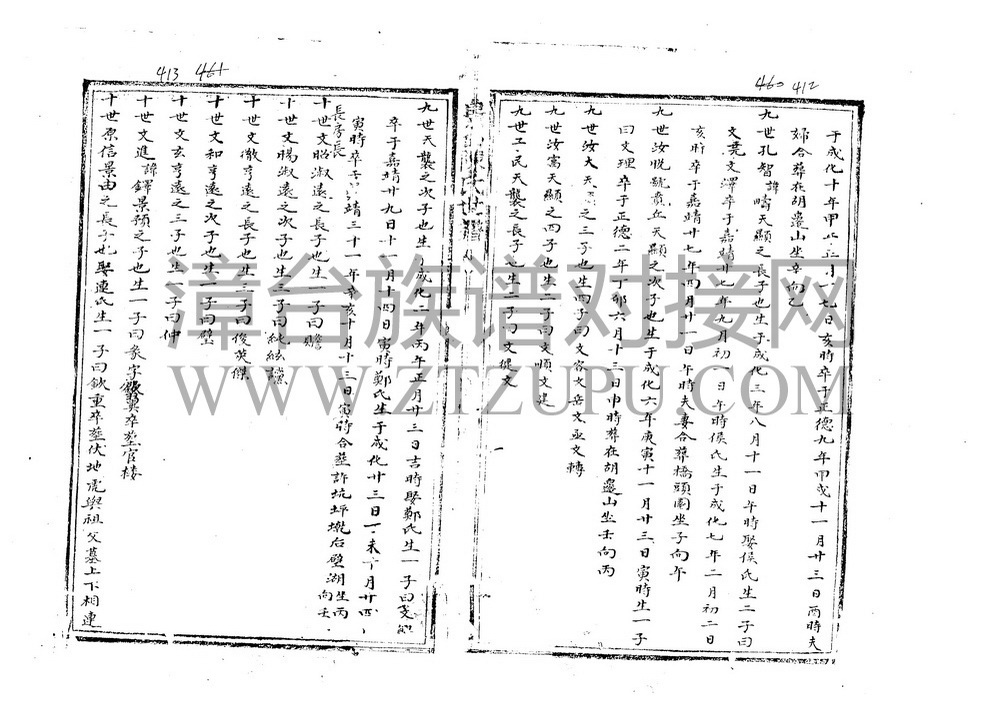 460 412
于成化十年甲午正月十七日亥時卒于正德九年甲戌十一月廿三日酉時夫
婦合葬在胡邊山坐辛向乙
九世孔智諱疇天顯之長子也生于成化三年八月十一日午時娶侯氏生二子曰
文堯文澤卒于嘉靖廿七年九月初一日午時侯氏生于成化七年二月初二日
亥時卒于嘉靖廿七年四月廿一日午時夫妻合葬橋頭圍坐子向午
九世汝貺號賁丘天顯之次子也生于成化六年庚寅十一月廿三日寅時生一子
曰文理卒于正德二年丁卯六月十三日申時葬在胡邊山坐壬向丙
九世汝大天顯之三子也生四子曰文容文岳文亟文轉
九世汝寓天顯之四子也生二子曰文順文建
九世工民天襲之長子也生二子曰文從文
世譜
413 461
九世天襲之次子也生于成化二年丙午正月廿三日吉時娶鄭氏生一子曰
卒于嘉靖廿九日十一月十四日寅時鄭氏生于成化廿三日丁未十月廿四
寅時卒于嘉靖三十一年辛亥十月十三日寅時合葬詐坑坪墘后壁湖坐丙向壬
長房長
十世文昭淑遠之長子也生一子曰贍
十世文賜淑遠之次子也生三子曰純紘
十世文徹亨遠之長子也生三子曰俊英傑
十世文和亨遠之次子也生一子曰璧
十世文玄亨遠之三子也生一子曰仲
十世文進諱鐸景預之子也生一子曰象字翼卒塟官樓
十世原信景由之長子也娶連氏生一子曰欽重卒塟伏地虎與祖父墓上下相連
漳台族谱对接网
WWW.ZTZUPU.COM